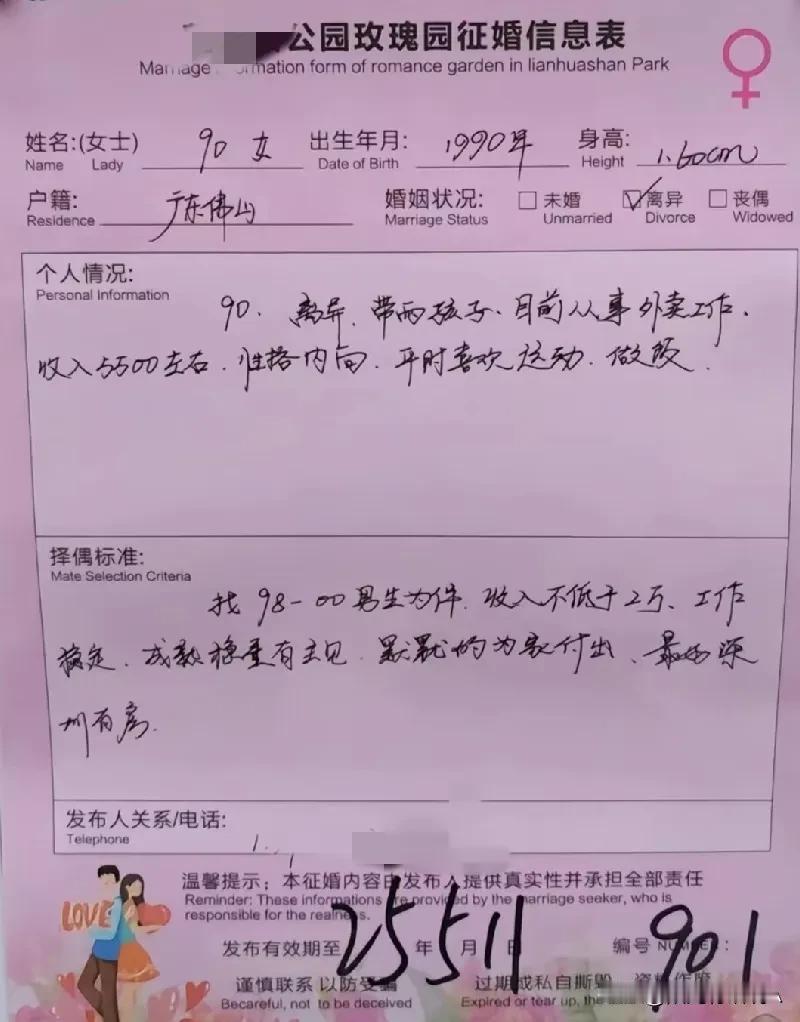 公园玫瑰园征婚信息表
Marriage mation form of romance garden in lianhuashan Park
姓名:(女士) 90 女 出生年月: 1990年 身高: 1.60cm
Name Lady Date of Birth Height
户籍: 广东佛山 婚姻状况: 未婚 离异 丧偶
Residence Marriage Status Unmarried Divorce Widowed
个人情况:
Personal Information
90. 离异. 带两孩子. 目前从事外卖工作.
收入5500左右. 性格内向. 平时喜欢运动. 做饭.
择偶标准:
Mate Selection Criteria
找 98-00男生为伴. 收入不低于2万、工作
稳定. 成熟稳重有主见. 默默的为家付出、最好深
圳有房.
发布人关系/电话:
Telephone
LOVE
温馨提示: 本征婚内容由发布人提供真实性并承担全部责任
Reminder: These informations are provided by the marriage seeker, who is
responsible for the realness.
发布有效期至 25 年 5 月 11 日 编号 NUMBER: 901
谨慎联系 以防受骗 过期或私自撕毁
Becareful, not to be deceived Expired or tear up, the